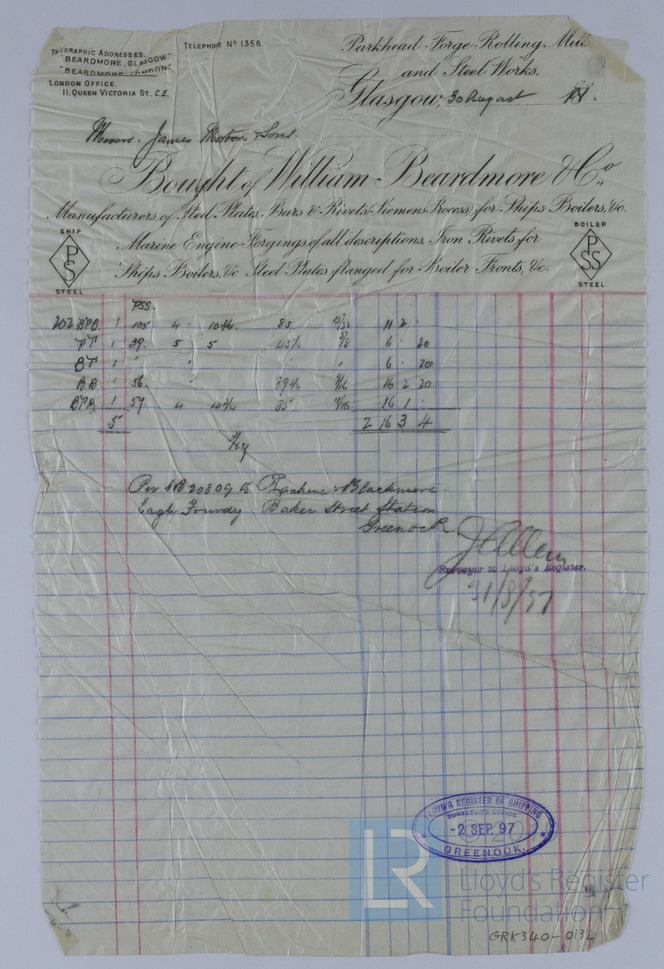 TELEGRAPHIC ADDRESSES.
"BEARDMORE, GLASGOW"
"BEARDMORE, LONDON"
LONDON OFFICE.
11, QUEEN VICTORIA ST., E.C.
TELEPHONE Nº 1356
Parkhead Forge Rolling Mills
and Steel Works,
Glasgow, 30 August
Messrs. James & Sons
Bought of William Beardmore & Co.,
Manufacturers of Steel Plates, Bars & Rivets (Siemens Process) for Ships Boilers, &c.
Marine Engine Forgings of all descriptions Iron Rivets for
Ships Boilers, &c Steel Plates flanged for Boiler Fronts, &c.
SHIP
PS
STEEL
BOILER
PSS
STEEL
PSS.
1 105 4 10¾ 85 11 2
1 39. 5 5 6 20
BT 1 " " 6 20
BB 1 56. " 16 2 20
1 57 4 10¾ 85 16 1
5 2 16 3 4
Per 20809 to Rankin & Blackmore.
Eagle Foundry Baker Street Station
Greenock
Surveyor to Lloyd's Register.
31/8/97
LLOYD'S REGISTER OF SHIPPING
SURVEYOR'S OFFICE
-2 SEP. 97
GREENOCK.
LR
© 2020
Lloyd's Register
Foundation
GRK340-0134